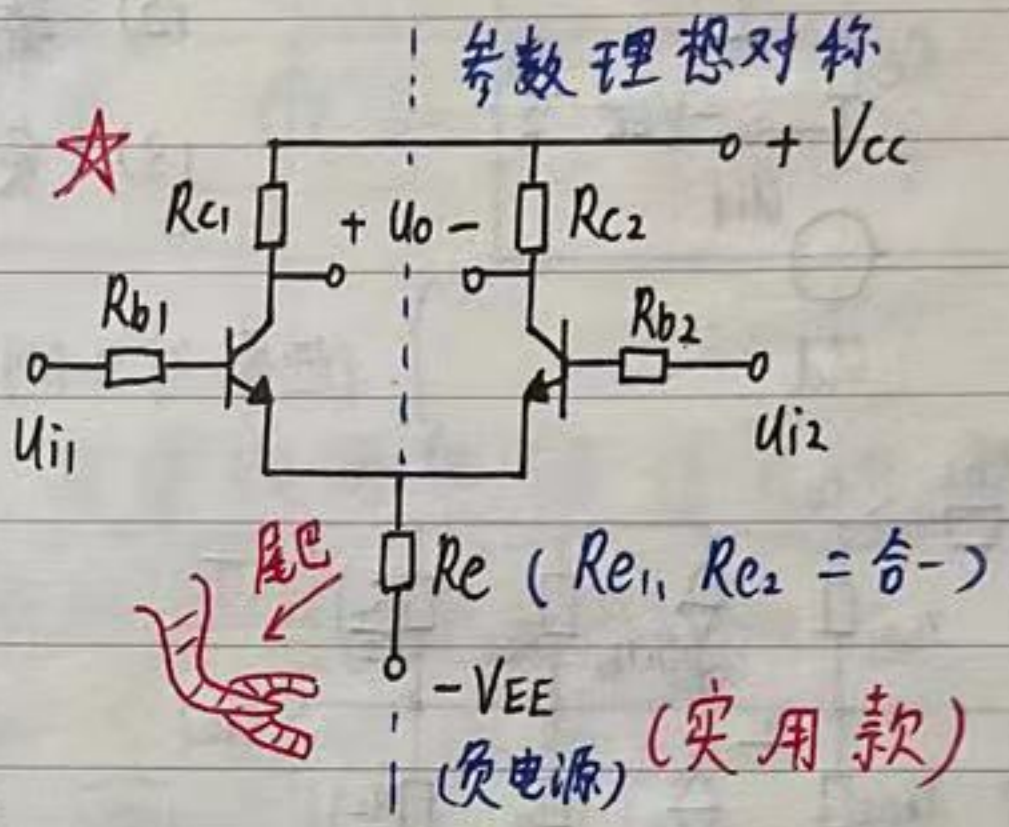 参数理想对称
+ Vcc
Rc1 + uo - Rc2
Rb1 Rb2
ui1 ui2
尾巴 Re (Re1、Re2 二合一)
-VEE
(负电源) (实用款)